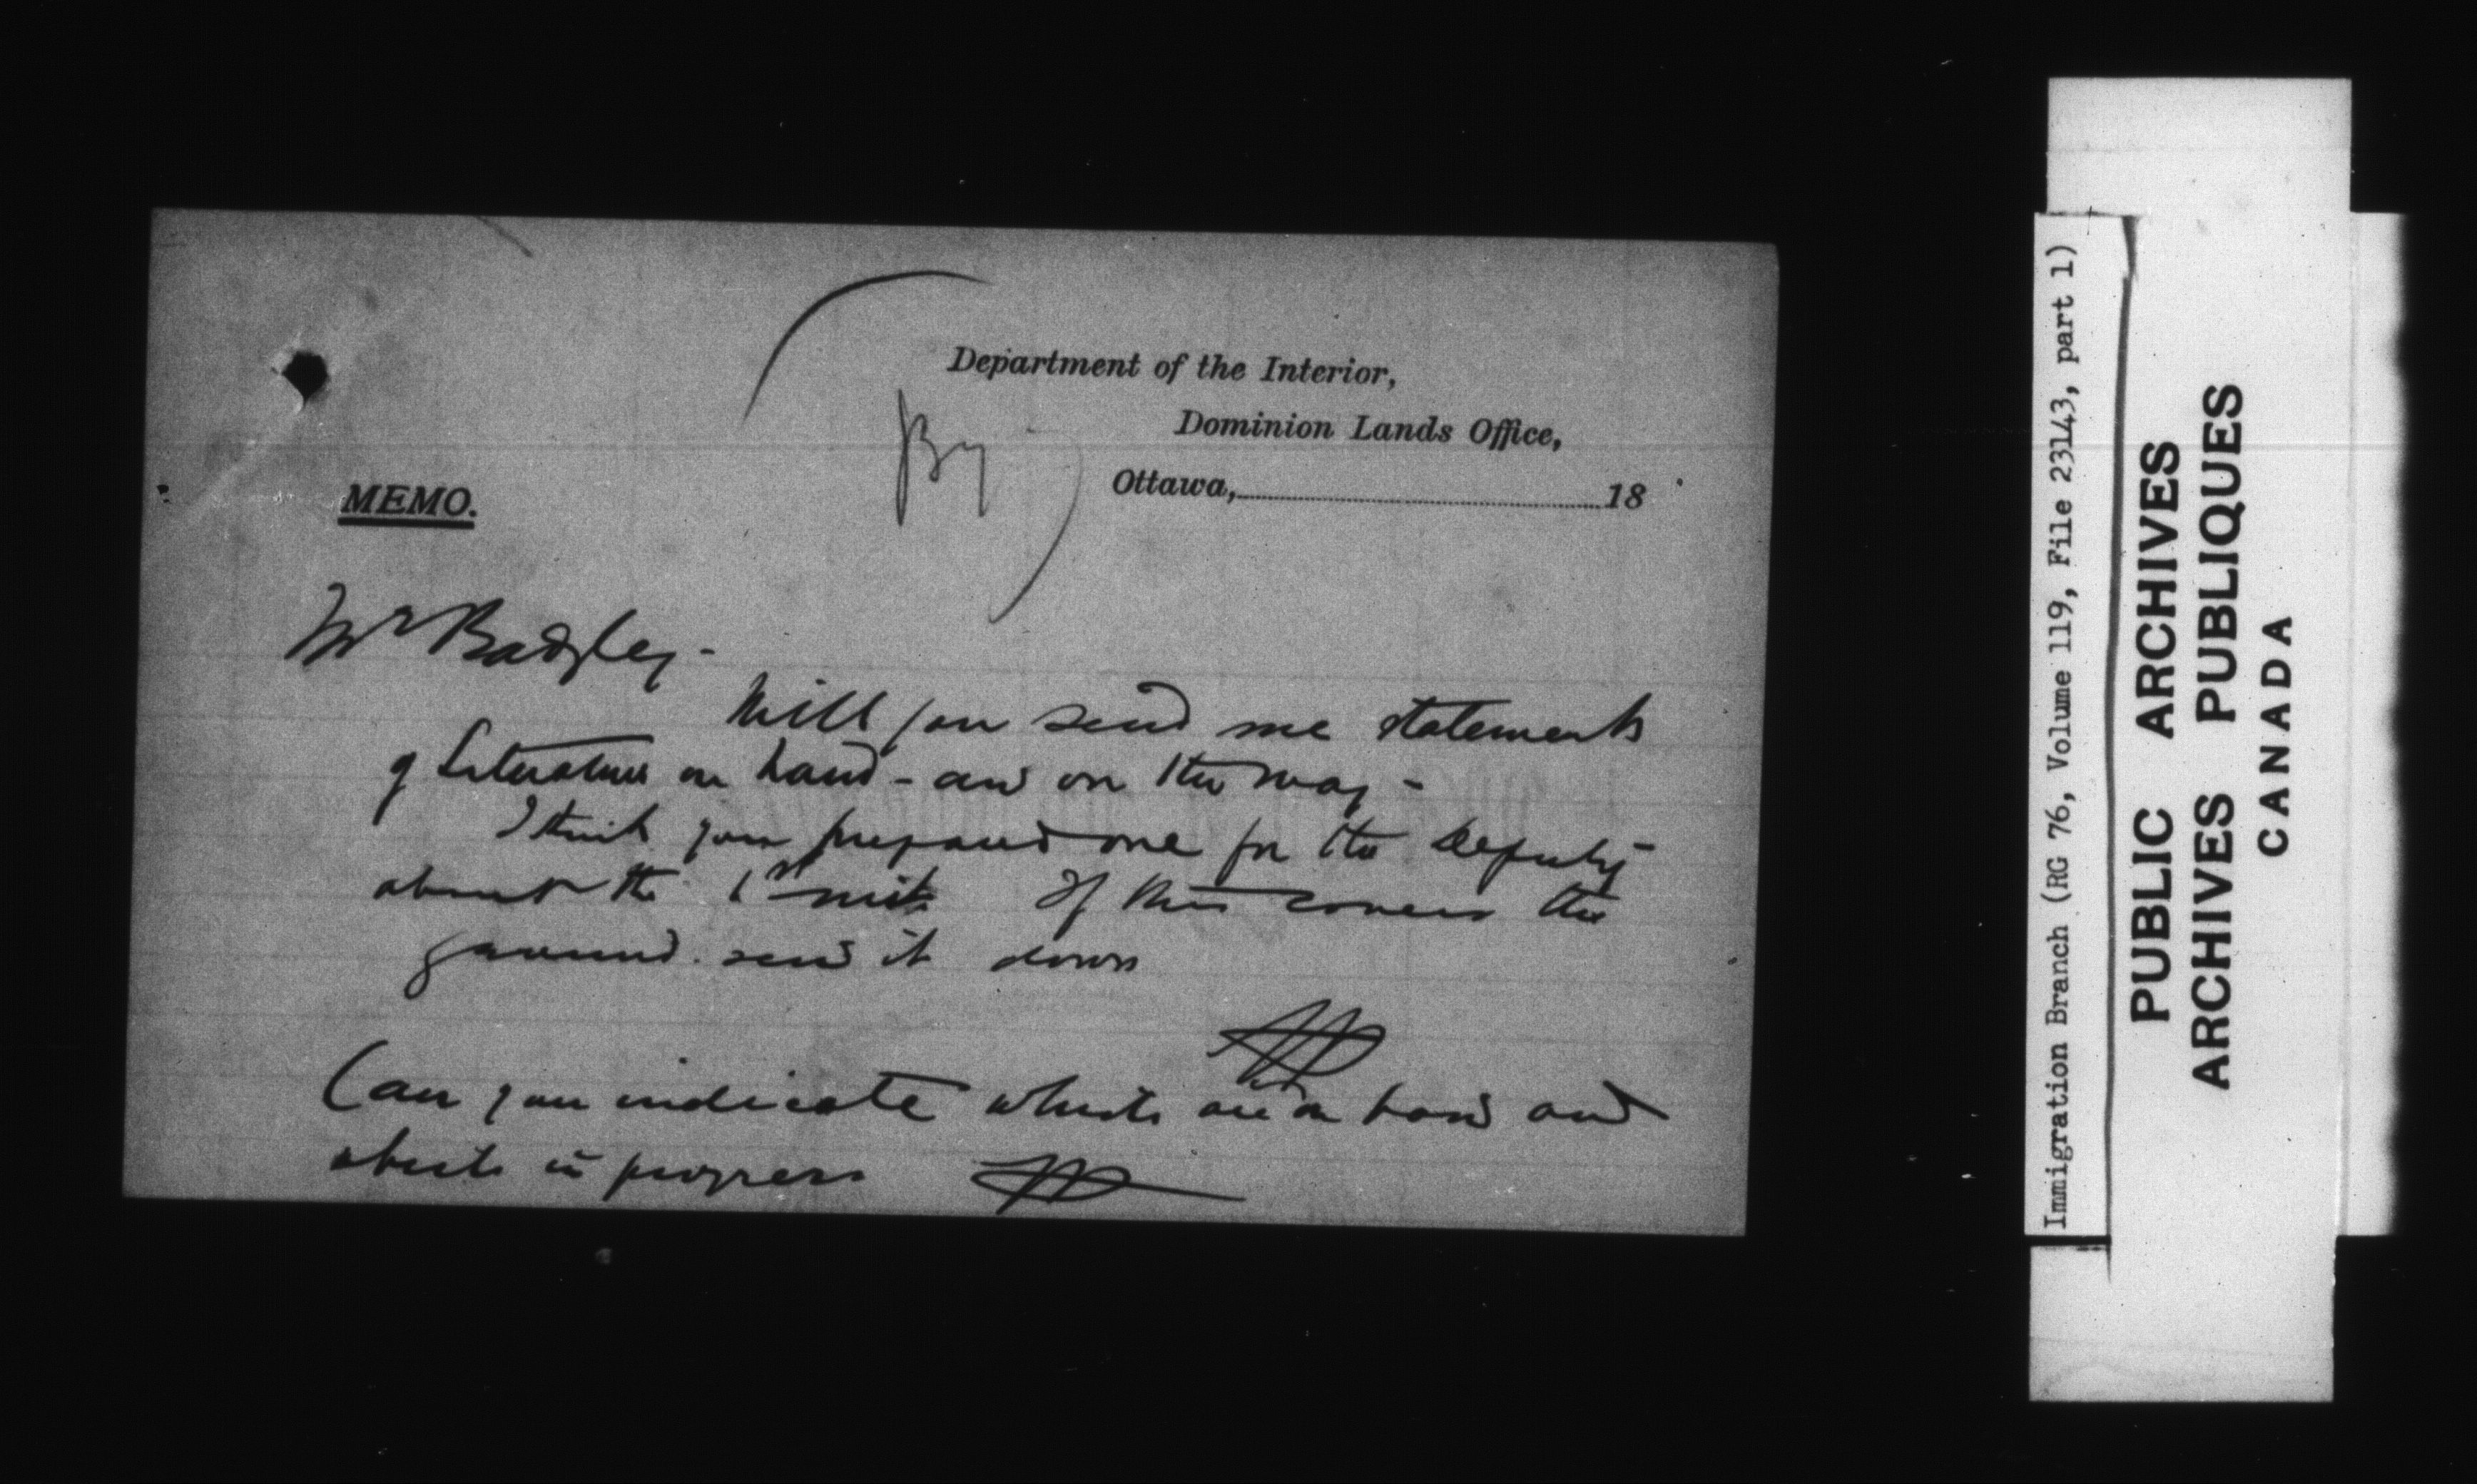 Department of the Interior,
Dominion Lands Office,
By
Ottawa, 18
MEMO.
Mr Badgley -
Will you send me statements
of Literature on hand - and on the way -
I think you prepared one for the Deputy
about the 1st If this covers the
ground. send it down
Can you indicate which are on hand and
which in progress
Immigration Branch (RG 76, Volume 119, File 23143, part 1)
PUBLIC ARCHIVES
ARCHIVES PUBLIQUES
CANADA